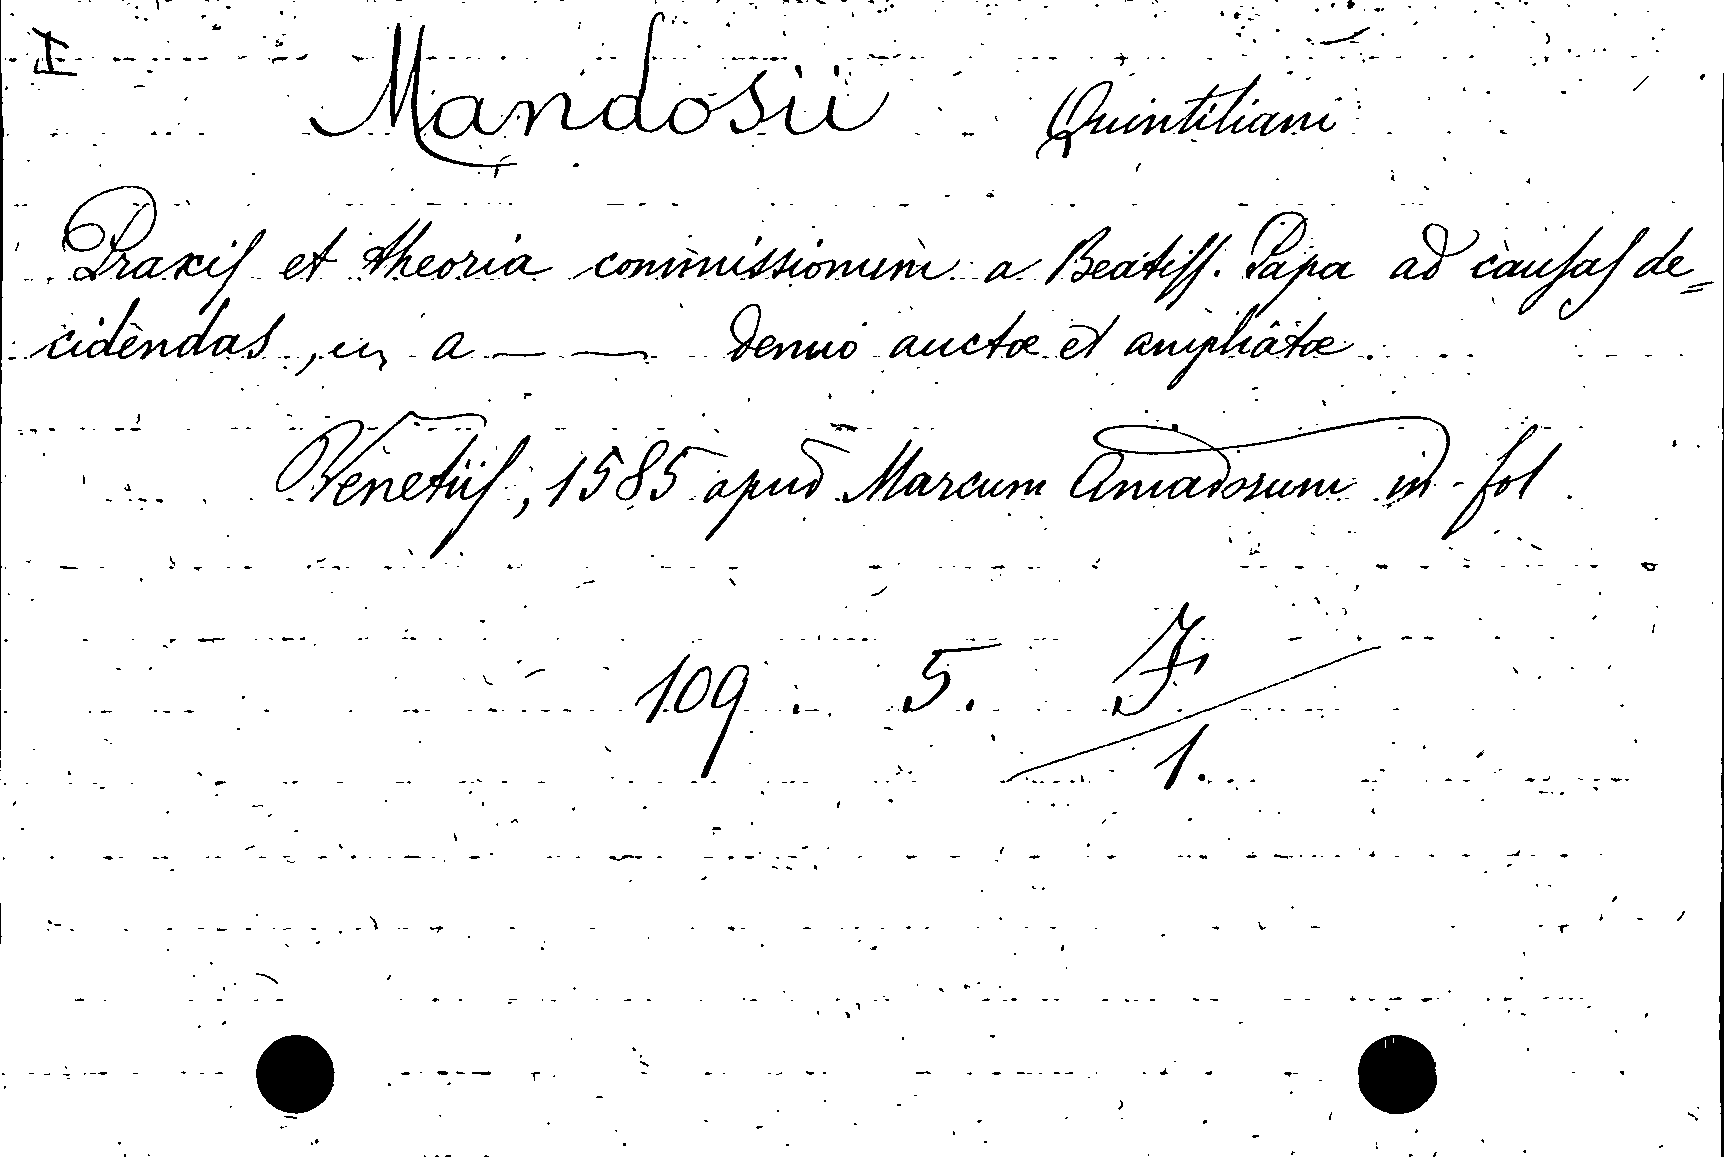 I
Mandosii Quintiliani
Praxis et theoria commissionum a Beatiss. Papa ad causas de=
cidendas, a — — denuo auctæ et ampliatæ.
Venetiis, 1585 apud Marcum Amadorum in-fol
109. 5. F/1.